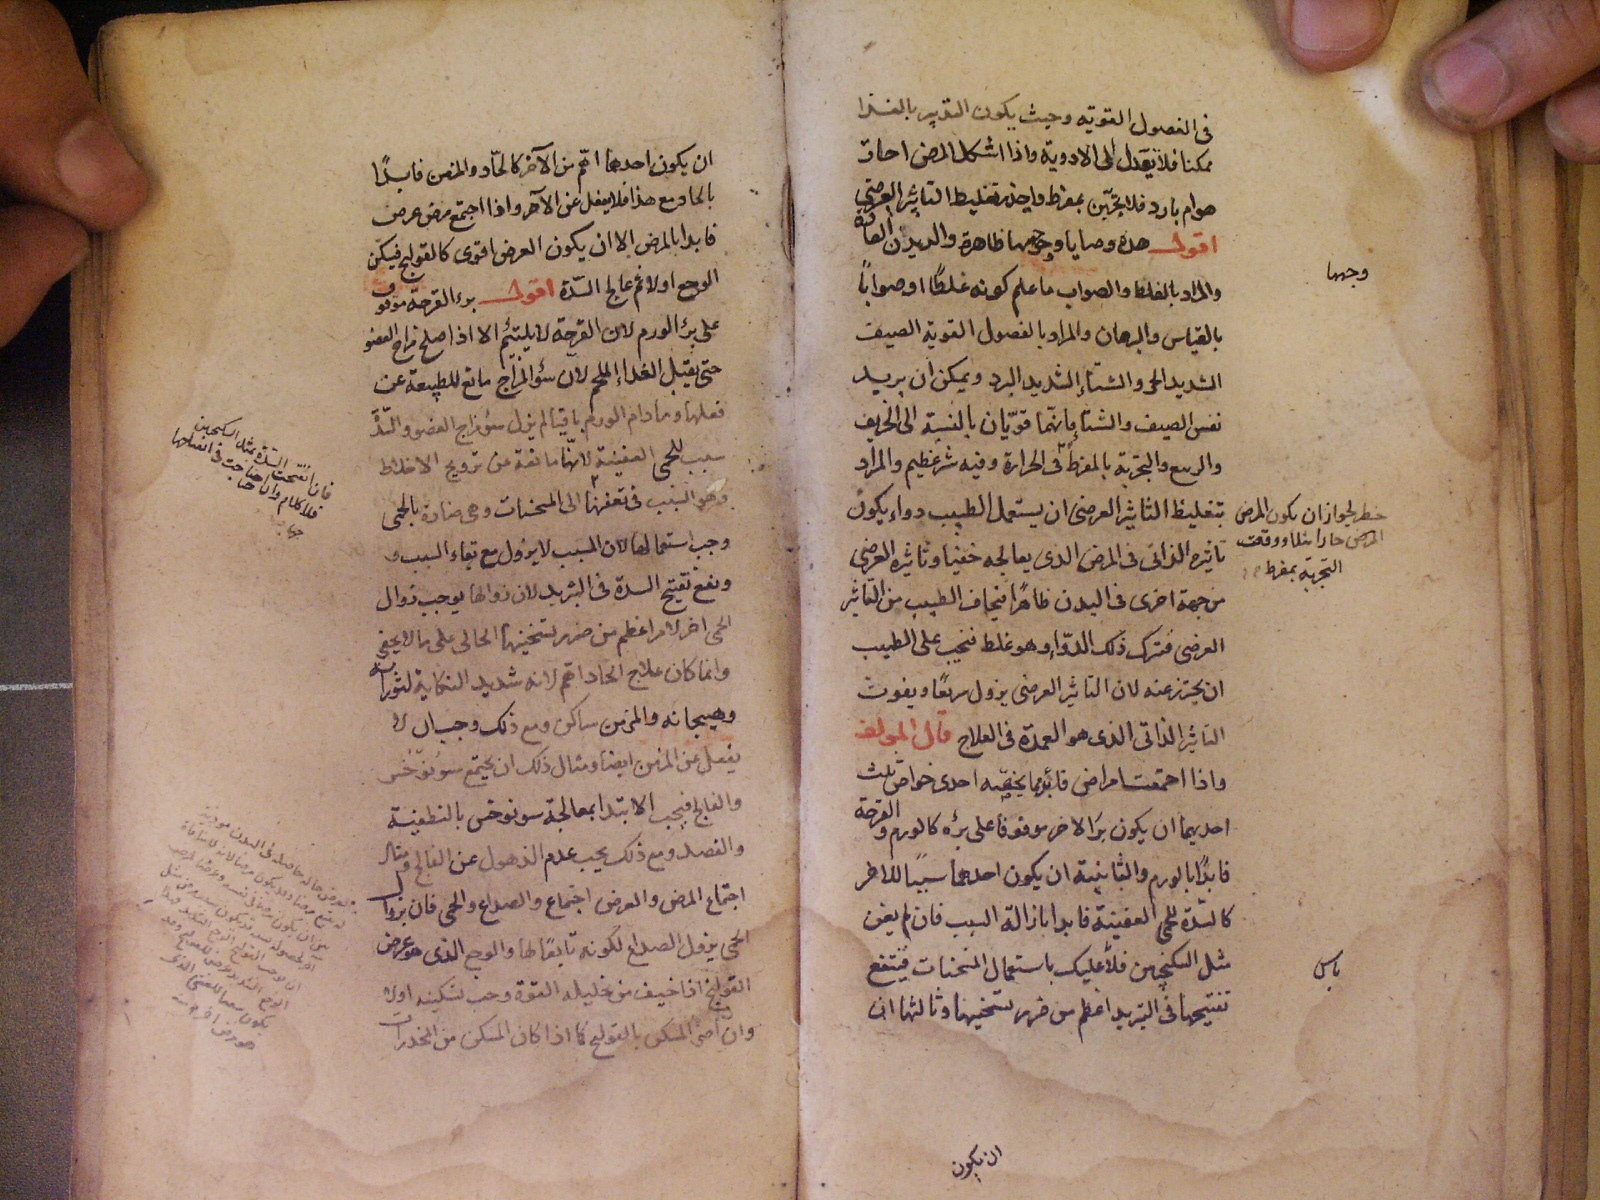 فى الفصول القوية وحيث يكون التدبير بالغذا
ممكنا فلا يعدل الى الادوية واذا اشكل المرض احار
هوام بارد فلا تجربن بمفرط واحذر تغليط التاثير العرضى
اقول هذه وصايا وجهها ظاهرة والديدن العادة
والمراد بالغلط والصواب ما علم كونه غلطًا او صوابًا
بالقياس والبرهان والمراد بالفصول القوية الصيف
الشديد الحر والشتاء الشديد البرد ويمكن ان يريد
نفس الصيف والشتا فانهما قويّان بالنسبة الى الخريف
والربيع والتجربة بالمفرط فى الحرارة وفيه شر عظيم والمراد
بتغليظ التاثير العرضى ان يستعمل الطبيب دواء يكون
تاثيره الذاتى فى المرض الذى يعالجه خفيا وتاثيره العرضى
من جهة اخرى فى البدن ظاهرًا فيخاف الطبيب من التاثير
العرضى فترك ذلك الدواء وهو غلط فيجب على الطبيب
ان يحترز عنه لان التاثير العرضى يزول سريعًا ويفوت
التاثير الذاتى الذى هو العمدة فى العلاج قال المولف
واذا اجتمعت امراض فابدٔ بما يخصه احدى خواص ثلث
احديهما ان يكون برٔ الاخر موقوفا على برٔه كالورم والقرحة
فابدٔا بالورم والثانية ان يكون احدهما سببًا للاخر
كالسّدة للحمى العفينة فابدا بازالة السبب فان لم يغن
مثل السكنجبين فلا عليك باستعمال المسخنات فينتفع
تفتيحها فى التبريد اعظم من ضرر تسخينها وثالثها ان
وجهها
خطر لجواز ان يكون المرض
المرض حارا مثلا ووقعت
التجربة بمفرط
باس
ان يكون
ان يكون احدهما اهم من الآخر كالحاد والمزمن فابدٔا
بالحاد ومع هذا فلا يغفل عن الآخر واذا اجتمع مرض وعرض
فابدا بالمرض الا ان يكون العرض اقوى كالقولنج فيسكّن
الوجع اولا ثم عالج السّدة اقول برء القرحة موقوف
على برٔ الورم لان القرحة لا يلتئم الا اذا صلح مزاج العضو
حتى يقبل الغذاء الملحم لان سؤ المزاج مانع للطبيعة عن
فعلها وما دام الورم باقيا لم يزل سؤ مزاج العضو والسّدّة
سبب للحمى العفينة لانّها مانعة من ترويح الاخلاط
وهو السبب فى تعفنها الى المسخنات وهى ضارة بالحمى
وجب استعمالها لان المسبب لا يزول مع بقاء السبب
ونفع تفتيح السدة فى التبريد لان زوالها يوجب زوال
الحمى اخر الامر اعظم من ضرر تسخينها الحالى على ما لا يخفى
وانما كان علاج الحاد اهم لانه شديد النكاية لثورانه
وهيجانه والمزمن ساكن ومع ذلك وجب ان لا
يغفل عن المزمن ايضا ومثال ذلك ان يجتمع سونوخس
والفالج فيجب الابتدا بمعالجة سونوخس بالتطفية
والفصد ومع ذلك يجب عدم الذهول عن الفالج ومثال
اجتماع المرض والعرض اجتماع والصداع والحمى فان بزوال
الحمى يزول الصداع لكونه تابعًا لها والوجع الذى هو عرض
القولنج اذا خيف من تحليله القوة وجب تسكينه اولا
وان اضر المسكن بالقولنج كما اذا كان المسكن من المخدرات
فان انفتحت السّدة بمثل السكنجبين
فلا كلام وان احتاجت فى انفتاحها